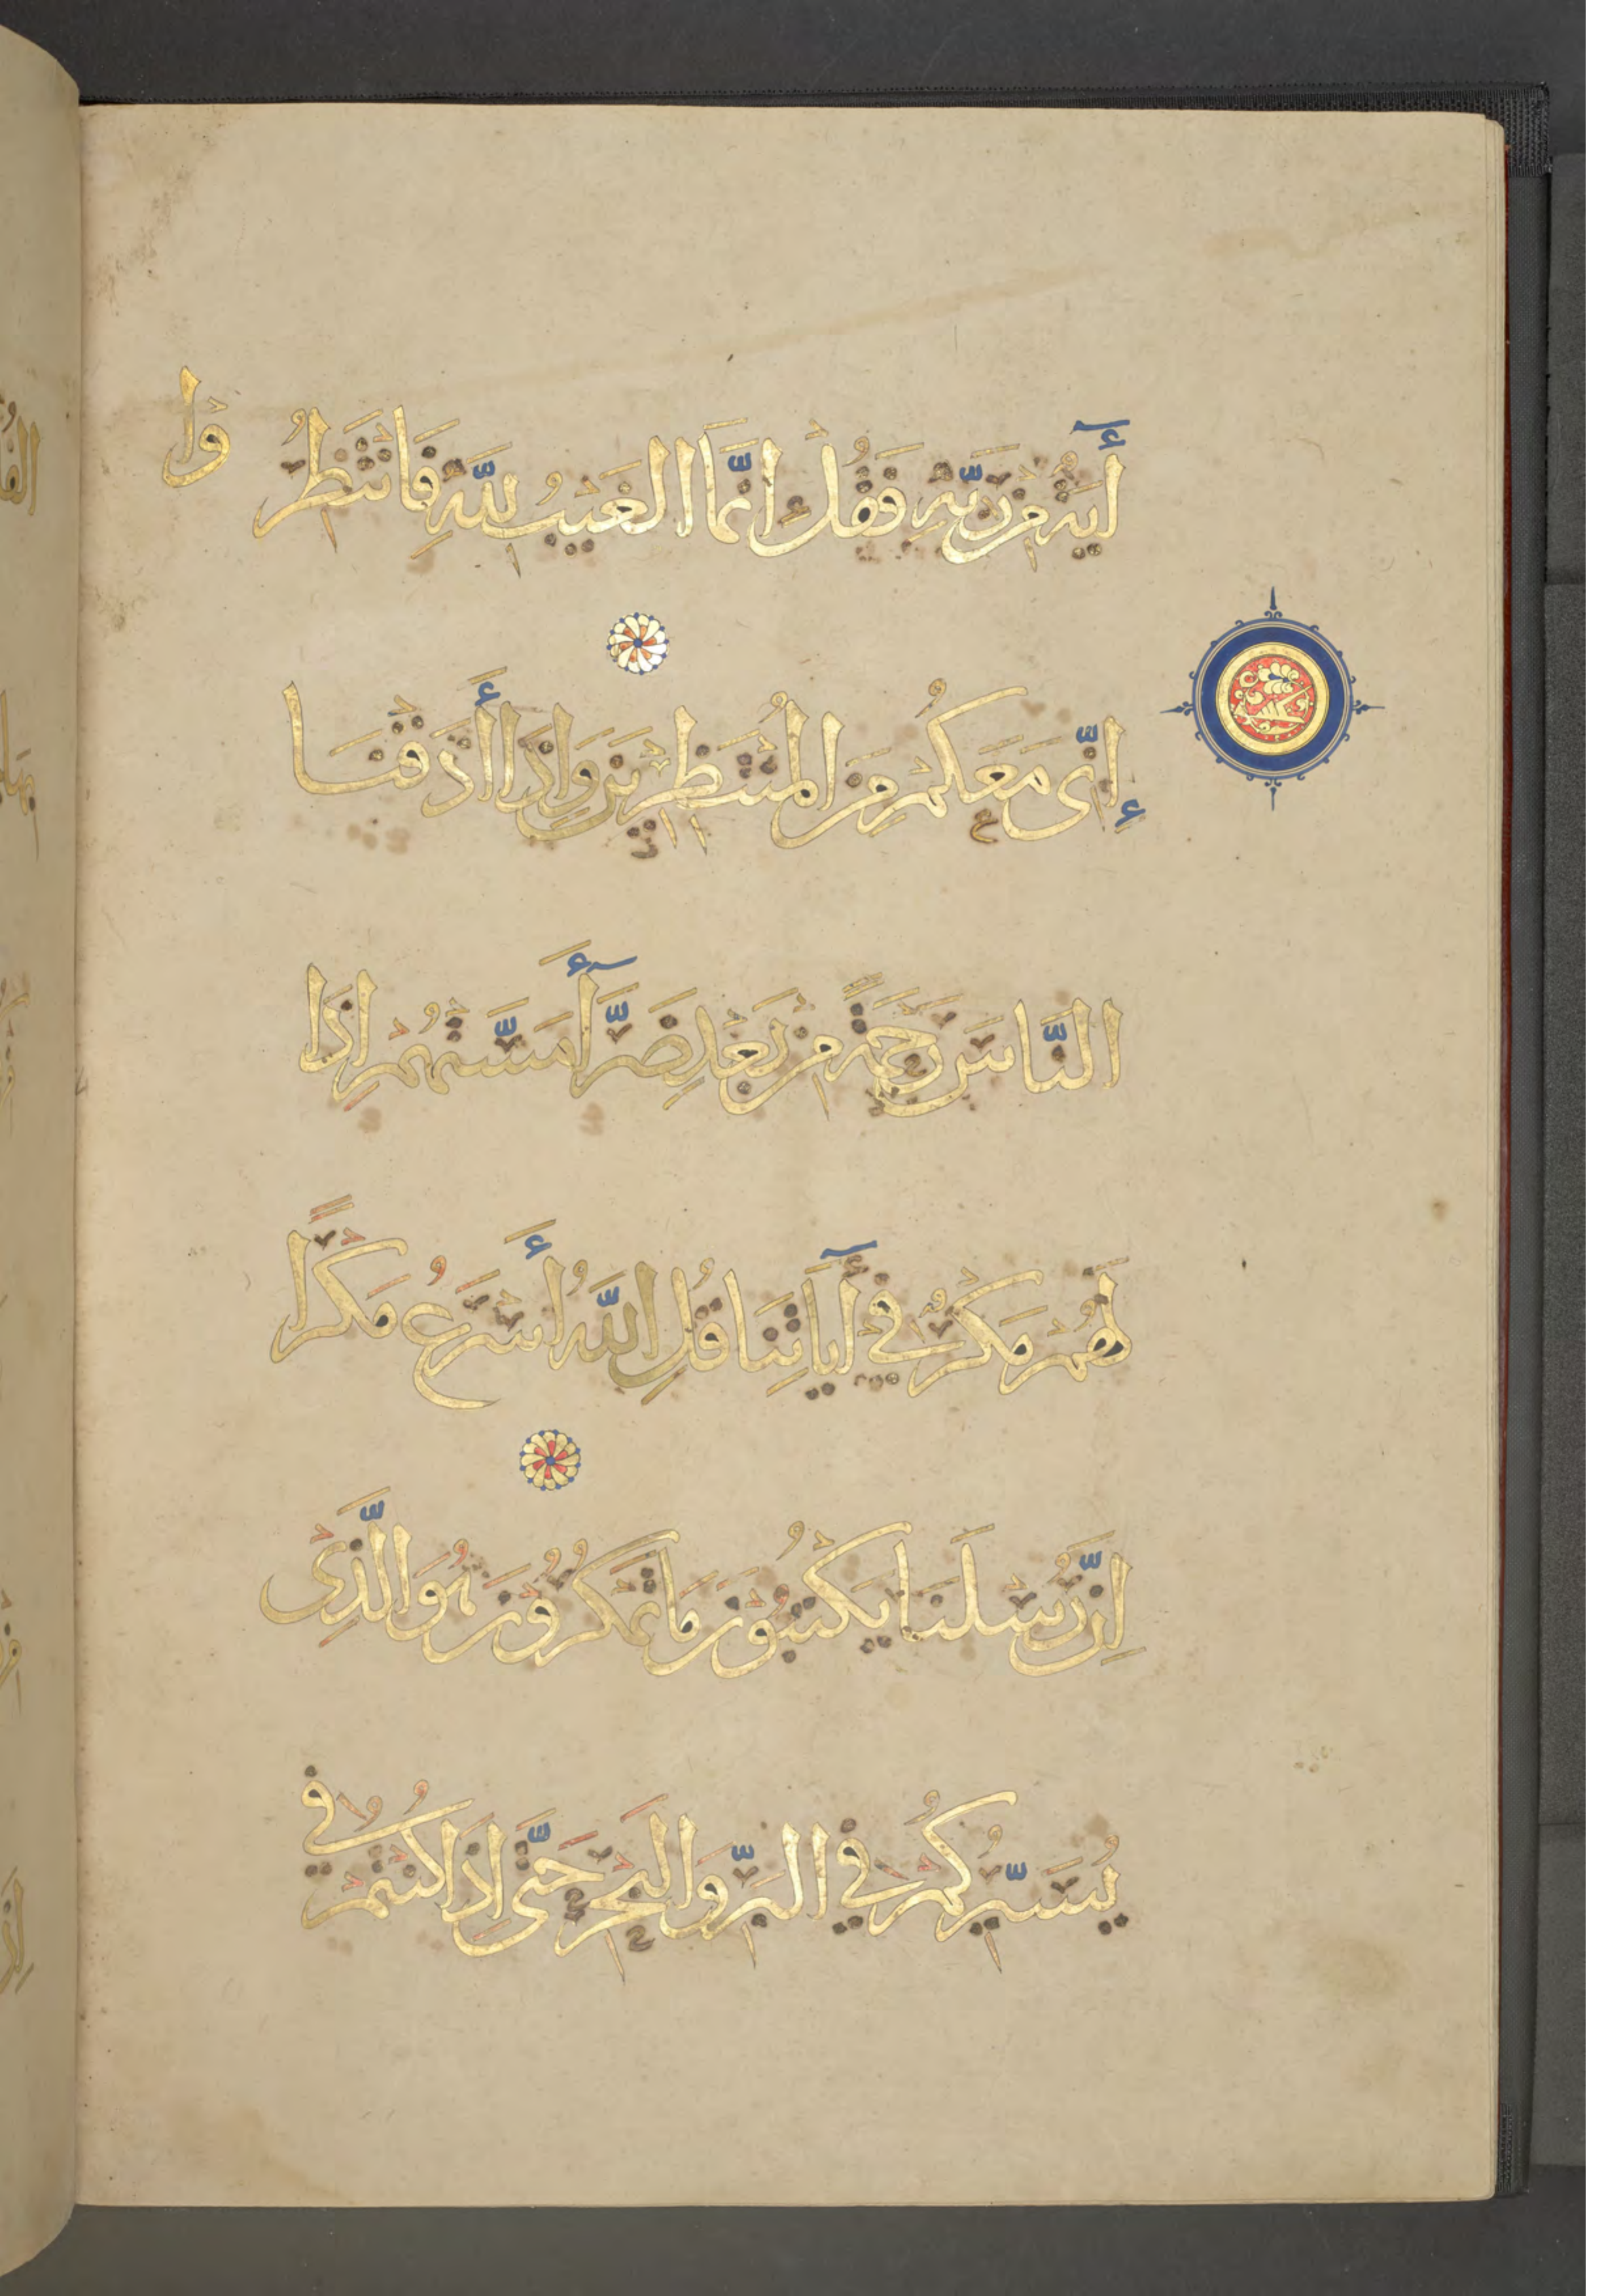 أَيَةٌ مِنْ رَبِّهِ فَقُلْ إِنَّمَا الغَيْبُ لِلَّهِ فَانْتَظِرُ وْا
إِنِّى مَعَكُمْ مِنَ المُنْتَظِرِيْنَ وَإِذَا أَذَقْنَا
النَّاسَ رَحْمَةً مِنْ بَعْدِ ضَرَّأَ مَسَّتْهُمْ إِذَا
لَهُمْ مَكْرٌ فِي أَيَاتِنَا قُلِ اللَّهُ أَسْرَعُ مَكْرًا
اِنَّ رُسْلَنَا يَكْتُبُوْنَ مَا تَمْكُرُوْنَ هُوَ الَّذِىْ
يُسَيِّرُكُمْ فِي البَرِّ وَالبَحْرِ حَتَّى اِذَا كُنْتُمْ فِي